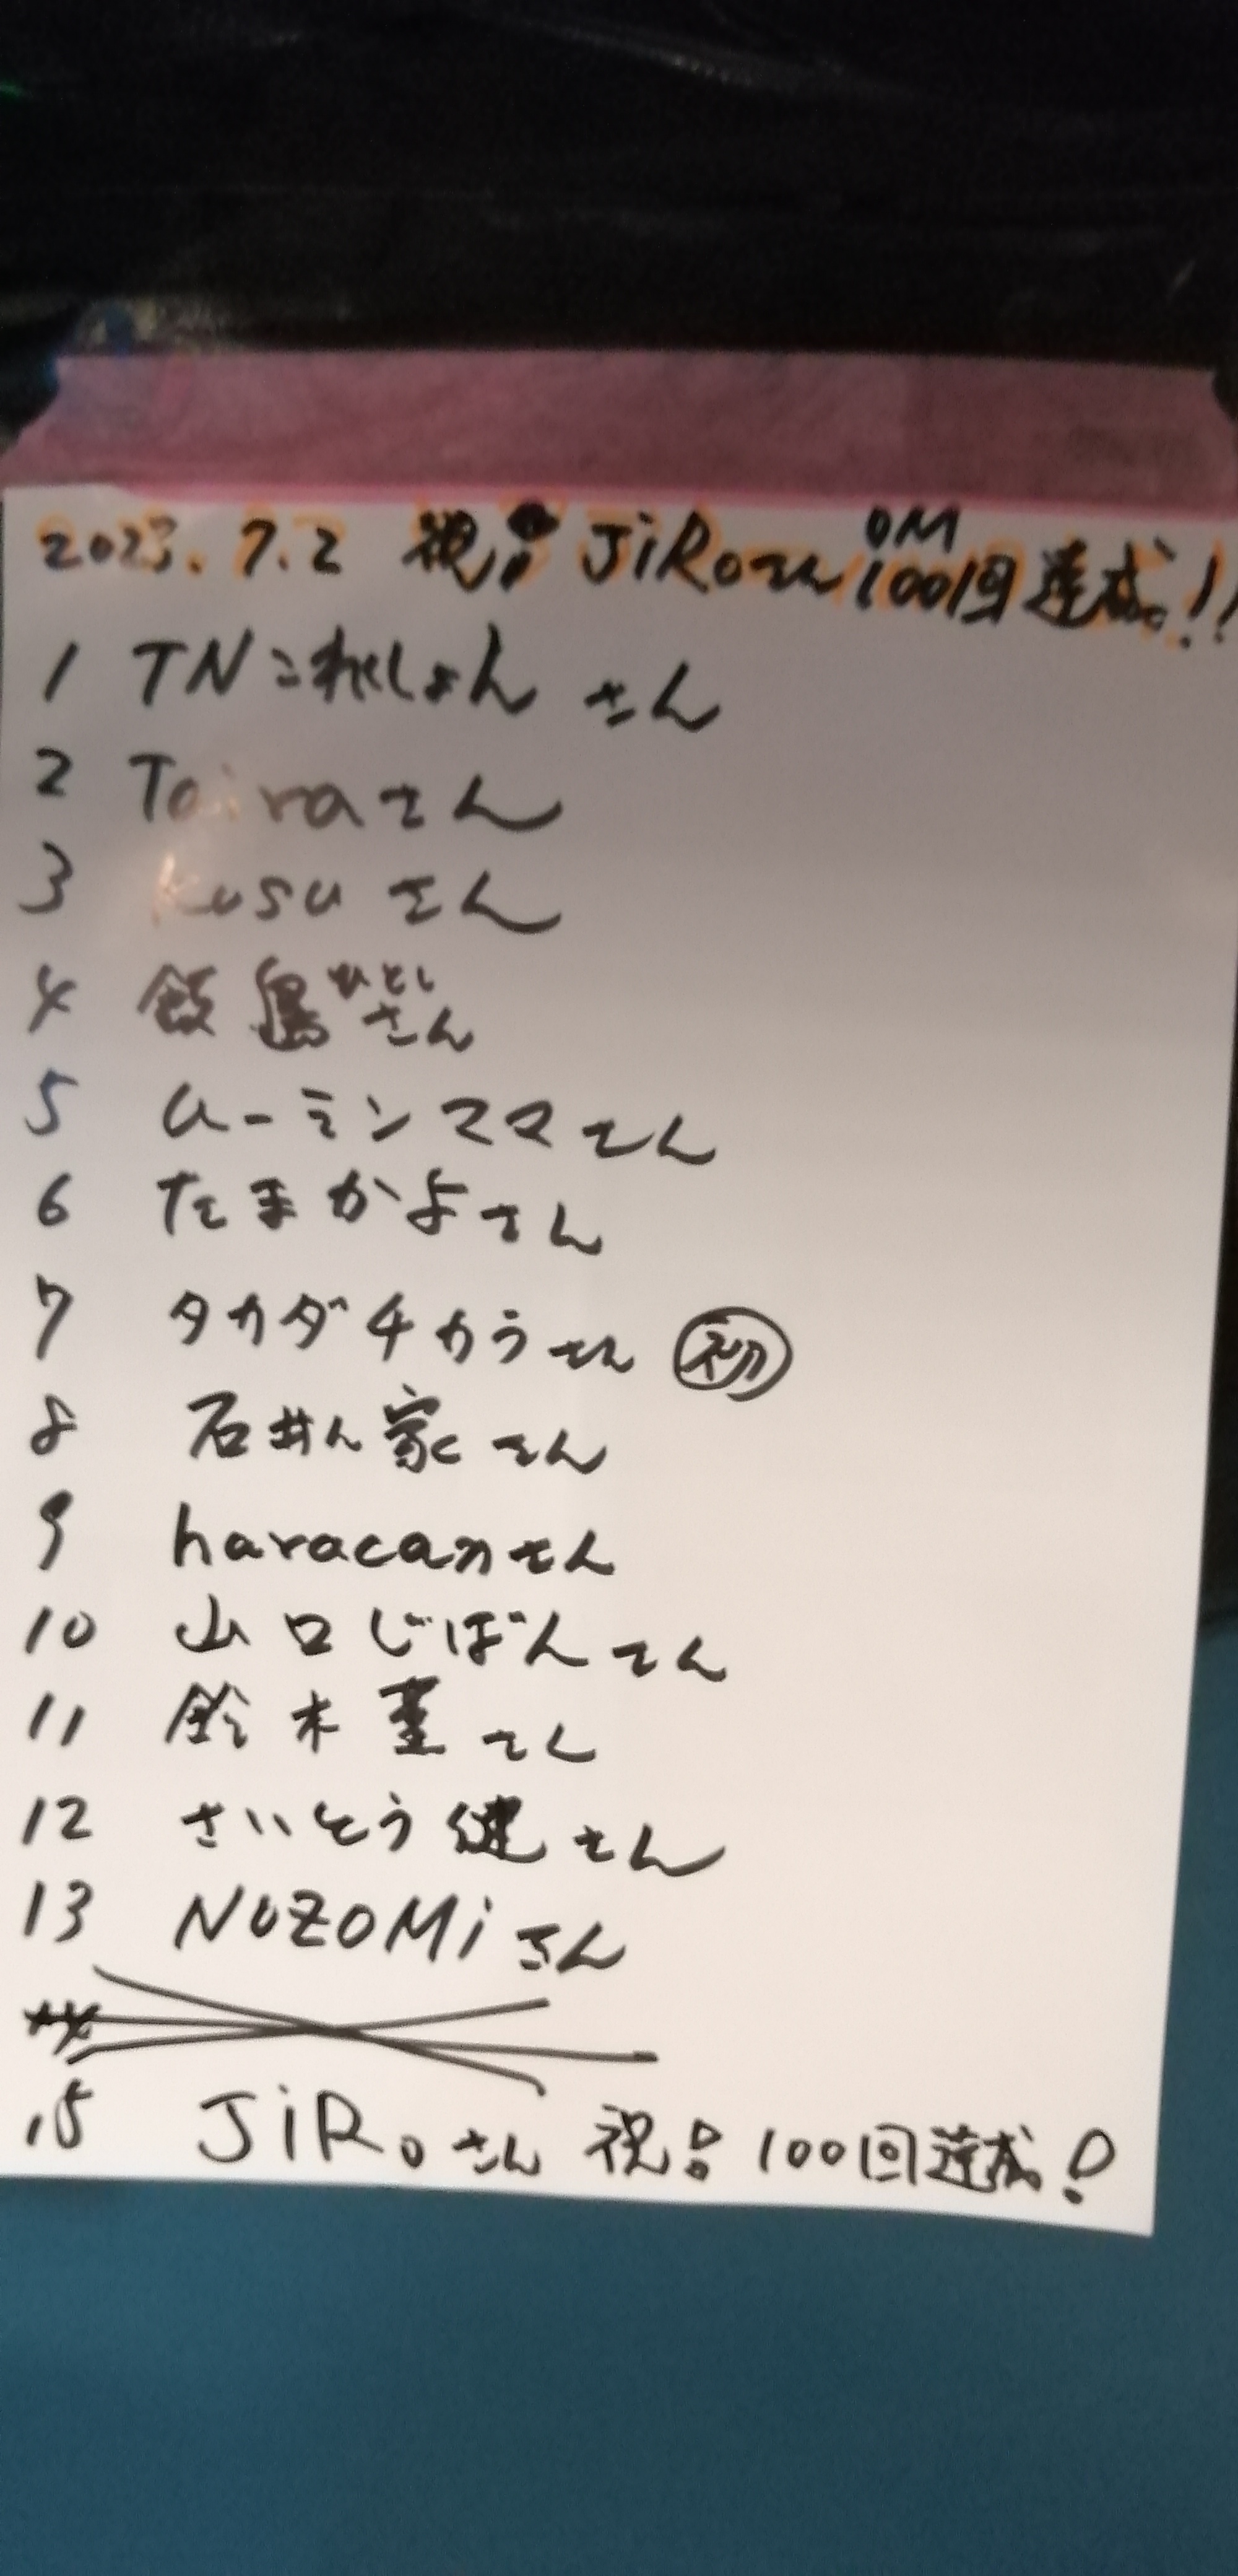 2023.7.2 祝! JiRoさん OM 100回達成!!
1 TNこれくしょん さん
2 Tairaさん
3 kusu さん
4 飯島ひとしさん
5 ムーミンママさん
6 たまかよさん
7 タカダチカラさん 初
8 石井ん家さん
9 haracanさん
10 山口じばんさん
11 鈴木菫さん
12 さいとう健さん
13 NOZOMiさん
15 JiRoさん 祝! 100回達成!